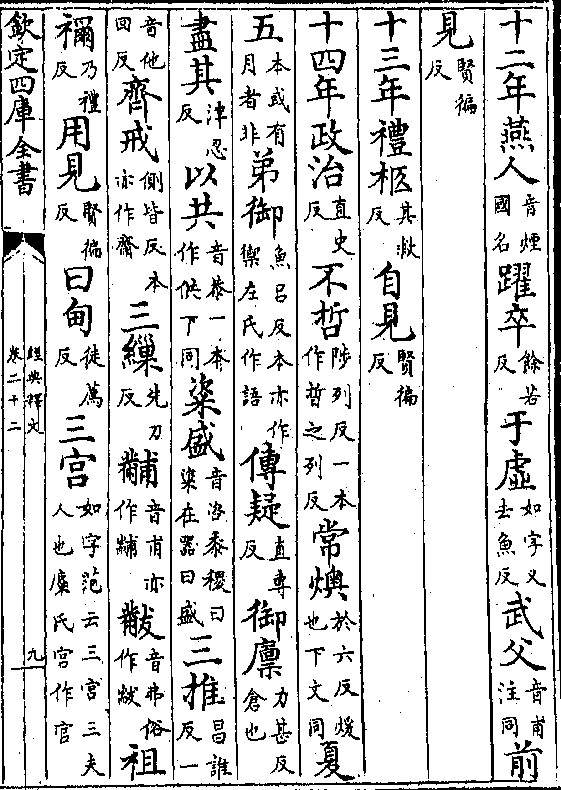 十二年燕人音煙國名躍卒餘若反于虛如字又去魚反武父音甫注同前
見賢徧反
十三年禮柩其救反自見賢徧反
十四年政治直吏反不哲陟列反一本作晢之列反常燠於六反煖也下文同夏
五本或有月者非弟御魚呂反本亦作禦左氏作語傳疑直專反御廩力甚反倉也
盡其津忍反以共音恭一本作供下同粢盛音咨黍稷曰粢在器曰盛三推昌誰反一
音他回反齊戒側皆反本亦作齋三繅先刀反黼音甫亦作黼黻音弗俗作紱祖
禰乃禮反用見賢徧反曰甸徒薦反三宮如字范云三宮三夫人也麋氏宮作官
欽定四庫全書
經典釋文
卷二十二
九